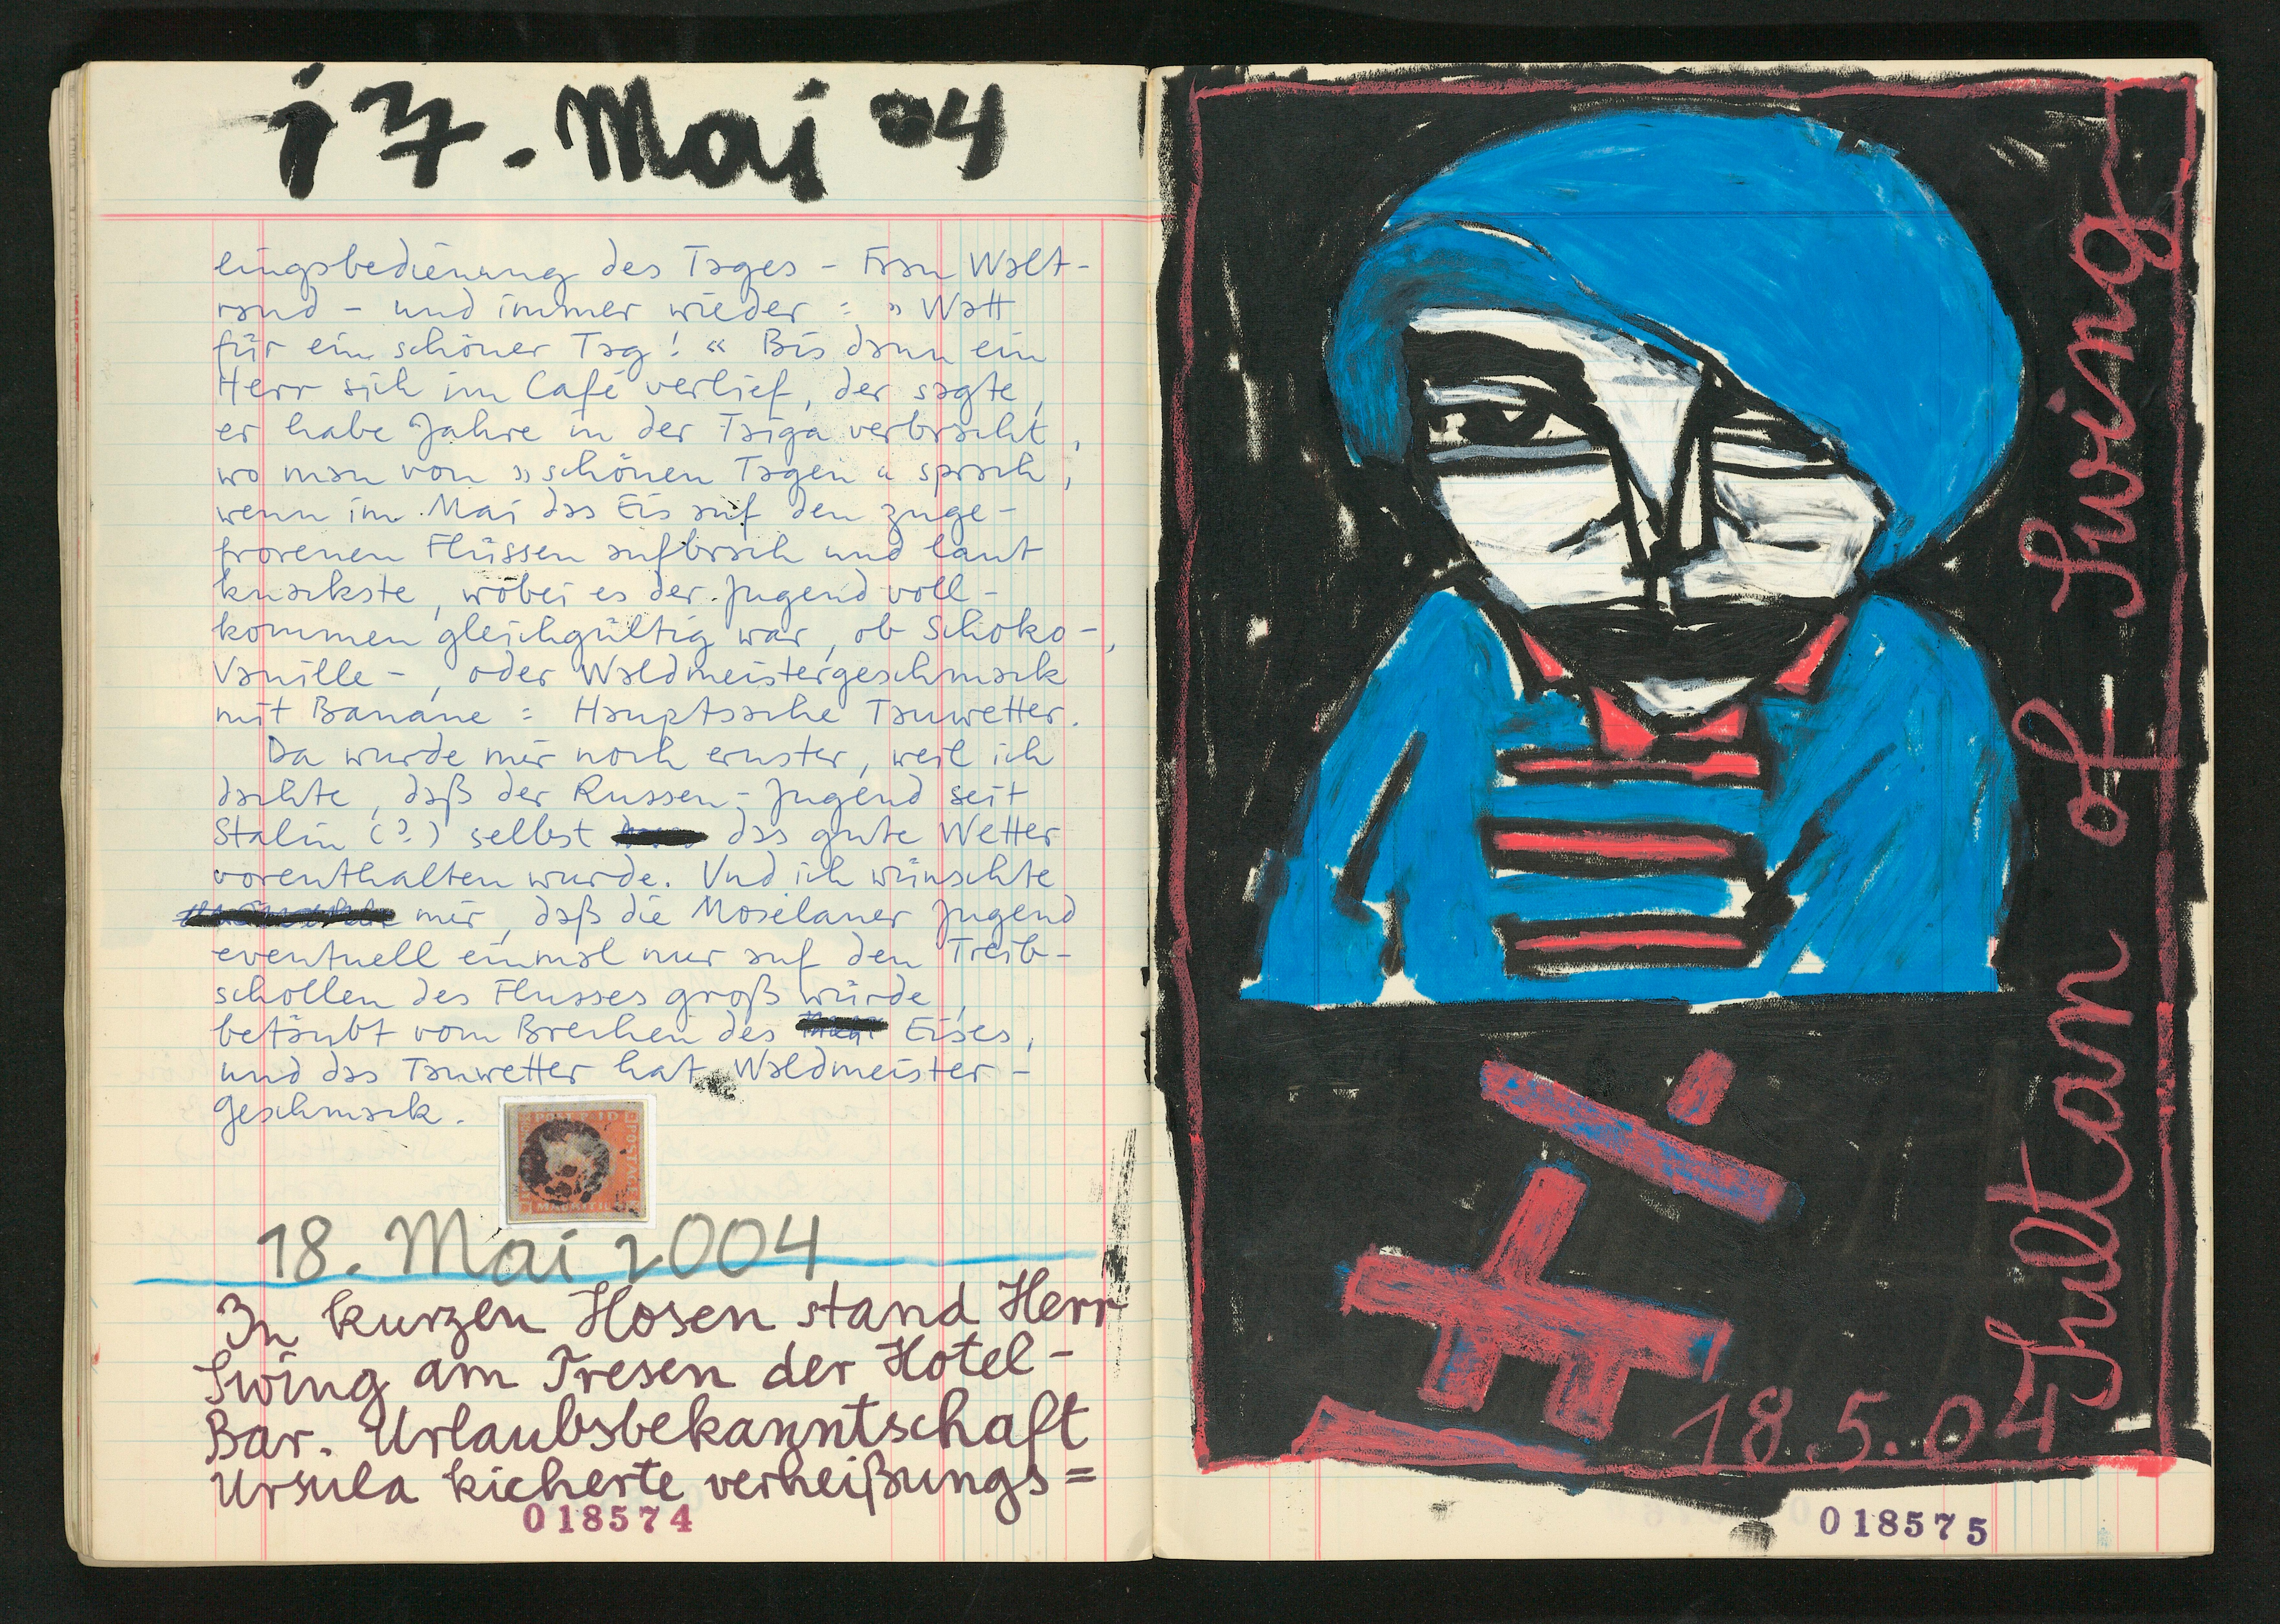 17. Mai 04
lingsbedienung des Tages - Frau Walt-
raud - und immer wieder : » Watt
für ein schöner Tag! « Bis dann ein
Herr sich im Café verlief, der sagte,
er habe Jahre in der Taiga verbracht,
wo man von » schönen Tagen « sprach,
wenn im Mai das Eis auf den zuge-
frorenen Flüssen aufbrach und laut
knackste, wobei es der Jugend voll-
kommen gleichgültig war, ob Schoko-,
Vanille-, oder Waldmeistergeschmack
mit Banane : Hauptsache Tauwetter.
Da wurde mir noch ernster, weil ich
dachte, daß der Russen-Jugend seit
Stalin (?) selbst das gute Wetter
vorenthalten wurde. Und ich wünschte
mir, daß die Moselaner Jugend
eventuell einmal nur auf den Treib-
schollen des Flusses groß würde,
betäubt vom Brechen des Eises,
und das Tauwetter hat Waldmeister-
geschmack.
POST PAID
POSTAGE
MAURITIUS
18. Mai 2004
In kurzen Hosen stand Herr
Swing am Tresen der Hotel-
Bar. Urlaubsbekanntschaft
Ursula kicherte verheißungs=
018574
Sultan of Swing
18.5.04
018575